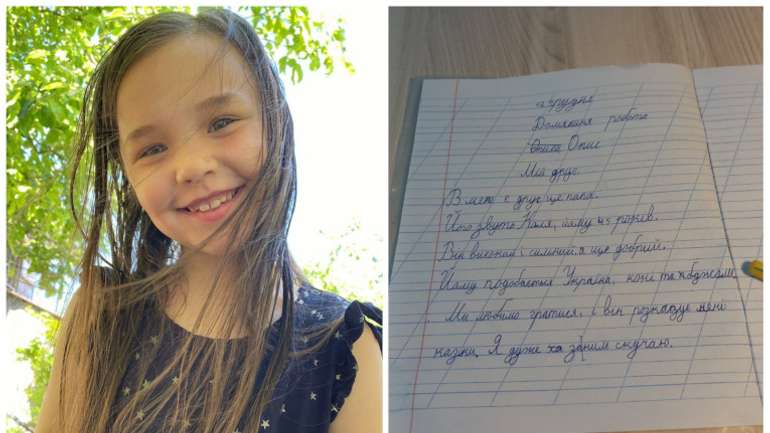 грудня
Домашня робота
Опис
Мій друг.
В мене є друг це папа.
Його звуть Коля, йому 45 років.
Він високий і сильний, а ще добрий.
Йому подобається Україна, коні та бджоли.
Ми любимо гратися, і він розказує мені
казки. Я дуже за ним скучаю.